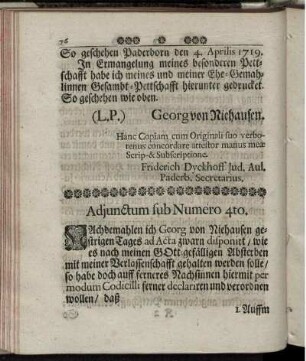 76
So geschehen Paderborn den 4. Aprilis 1719.
In Ermangelung meines besonderen Pett-
schafft habe ich meines und meiner Ehe-Gemah-
linnen Gesambt-Pettschafft hierunter gedrucket.
So geschehen wie oben.
(L.P.) Georg von Niehausen.
Hanc Copiam cum Originali suo verbo-
tenus concordare attestor manus meæ
Scrip-& Subscriptione.
Friderich Dyckhoff Jud. Aul.
Paderb. Secretarius.
Adjunctum sub Numero 4to.
NAchdemahlen ich Georg von Niehausen ge-
strigen Tages ad Acta zwarn disponirt, wie
es nach meinen GOtt gefälligen Absterben
mit meiner Verlassenschafft gehalten werden solle/
so habe doch auff ferneres Nachsinnen hiermit per
modum Codicilli ferner declariren und verordnen
wollen/ daß
1. Auffm